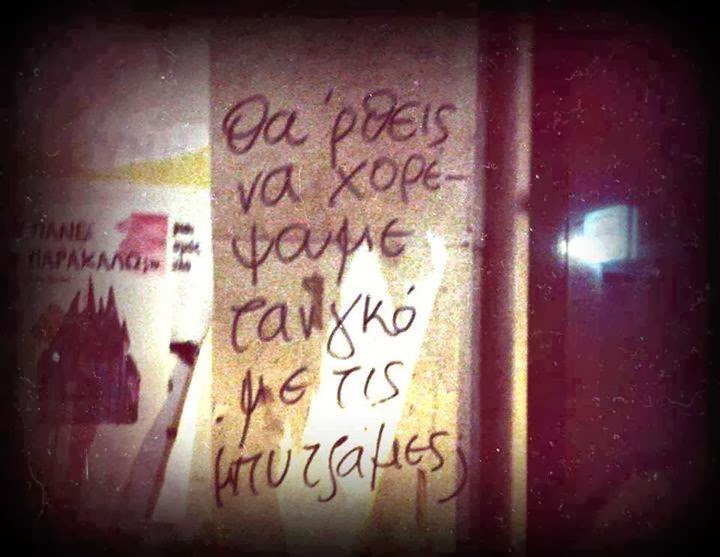 Θα 'ρθεις
να χορέ-
ψαμε
τανγκό
με τις
μπυτζάμες;
ΠΑΝΕ
ΠΑΡΑΚΑΛΩ;»